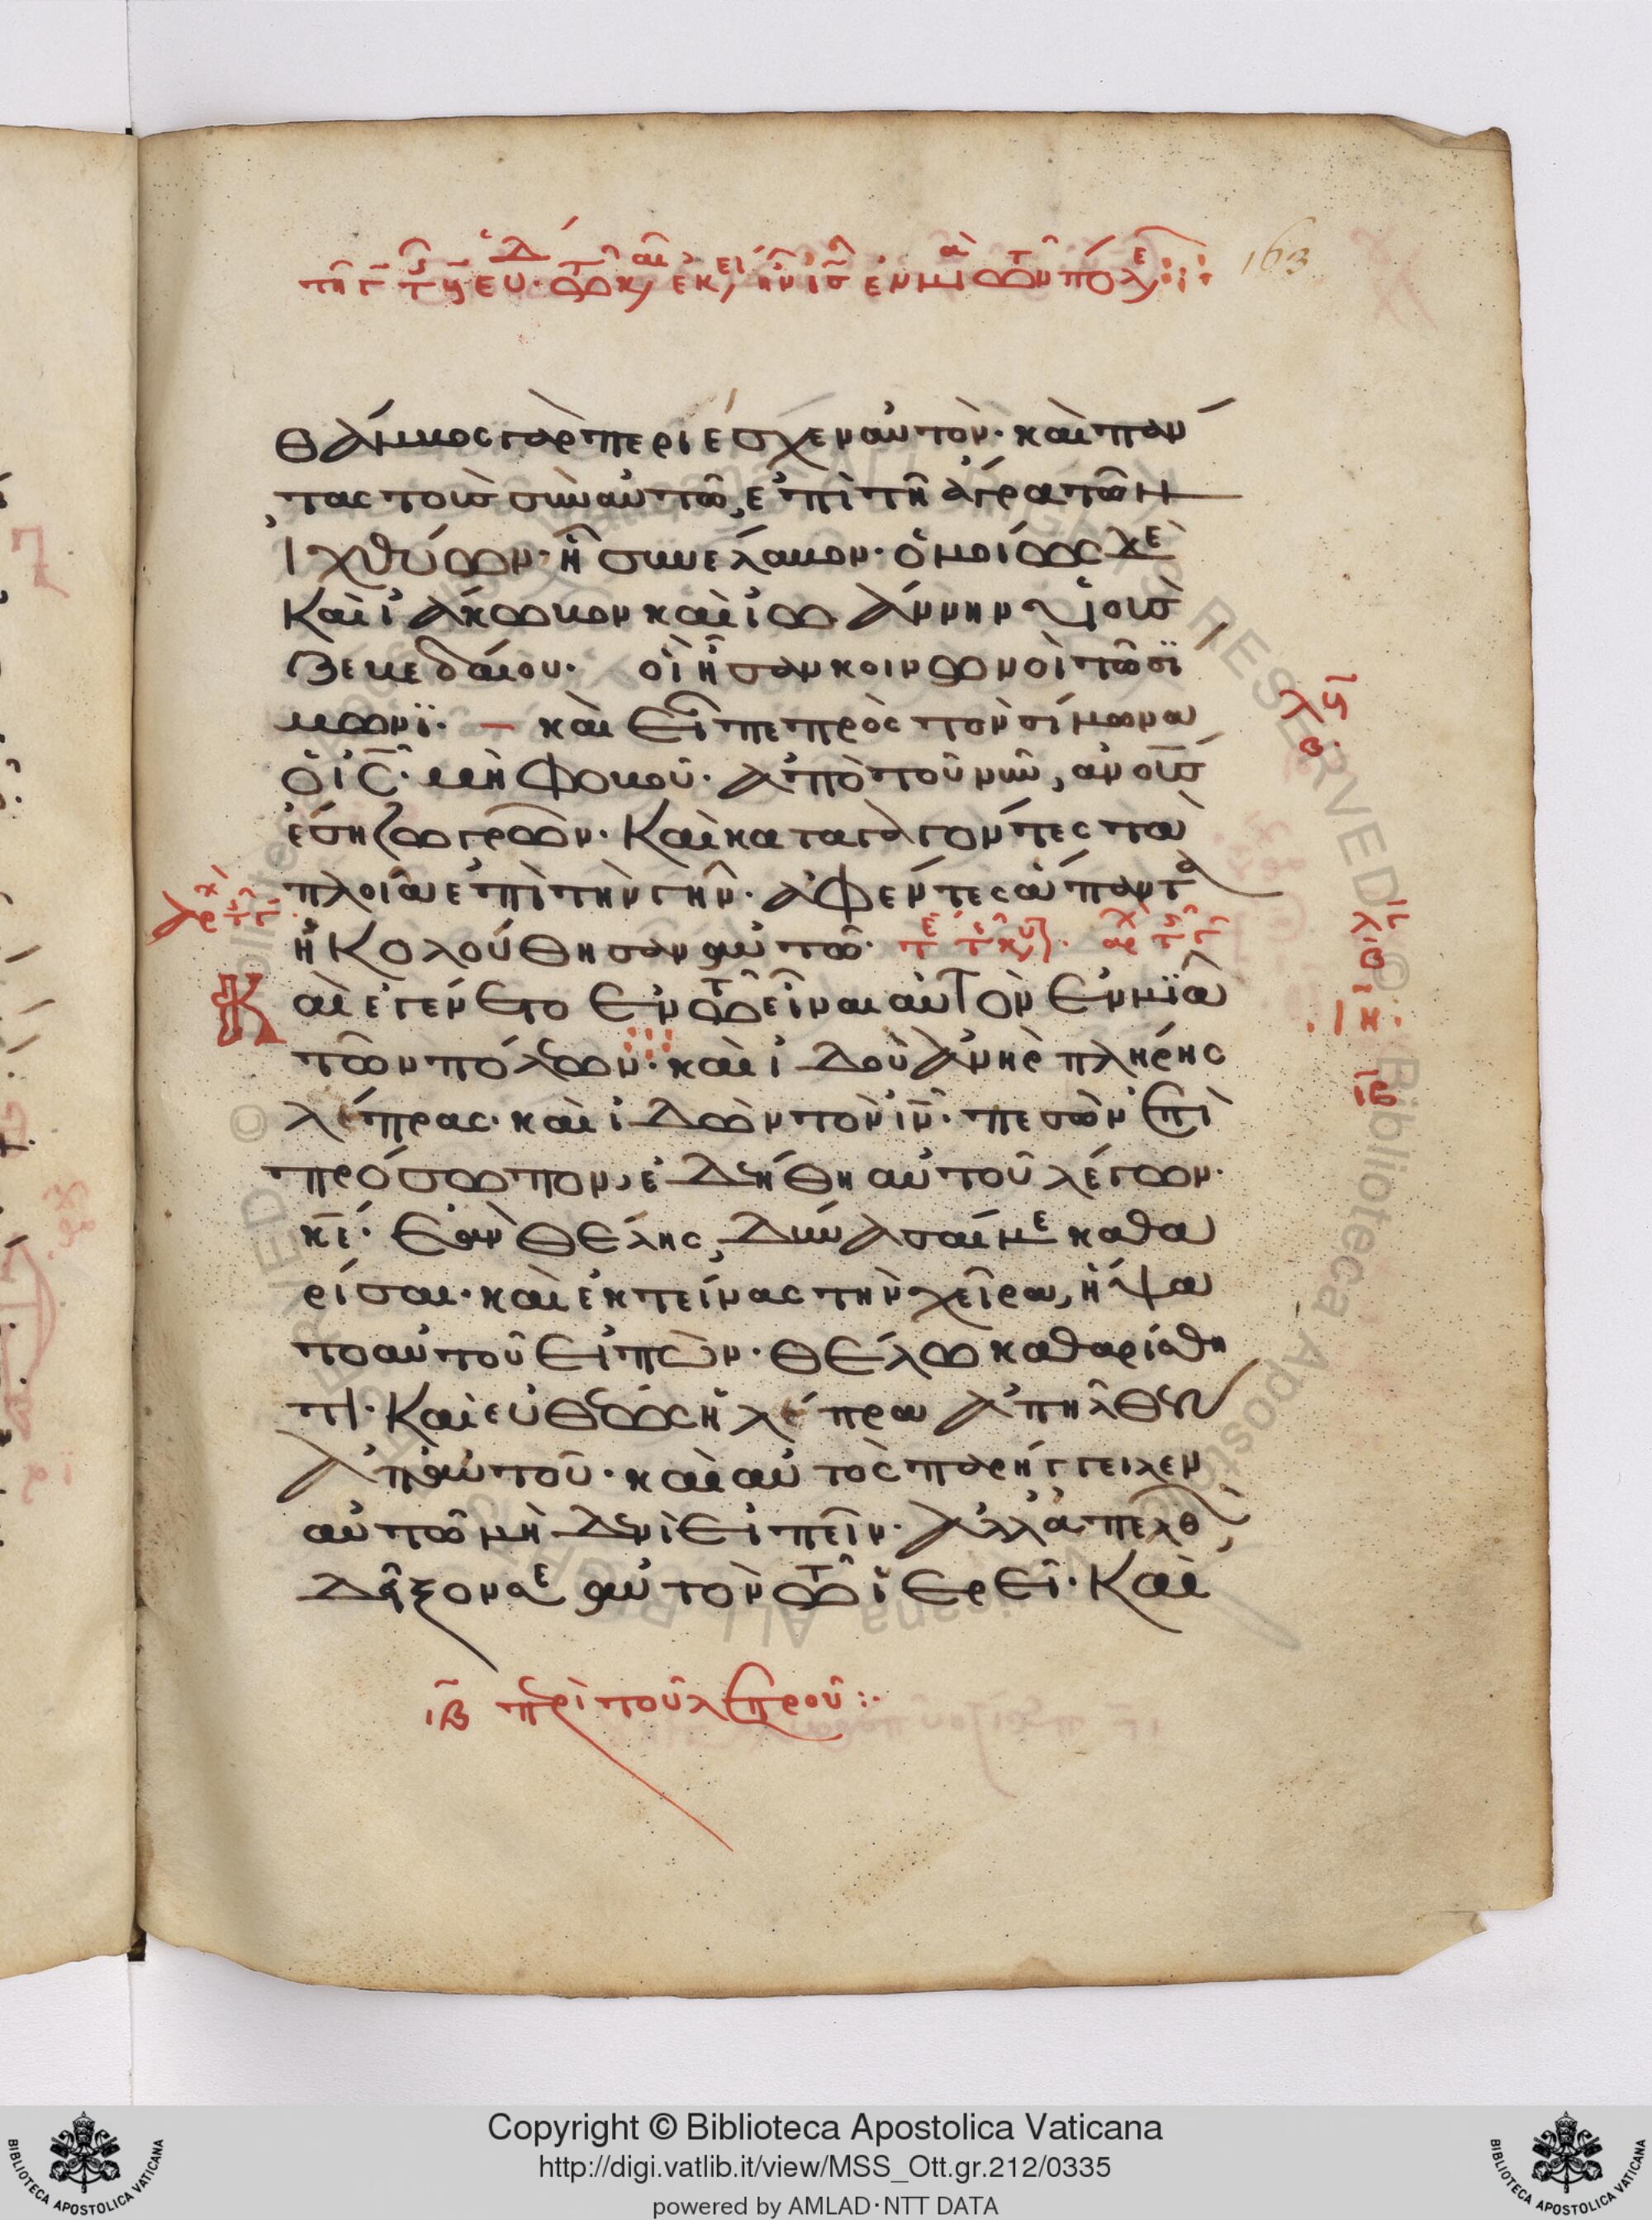 163
θάμβος γὰρ περιέσχεν αὐτὸν· καὶ πάν
τας τοὺς σὺν αὐτῶ, ἐπὶ τῆ ἄγρα τῶν
ἰχθύων· ἧ συνέλαβον· ὁμοίως δὲ
καὶ ἰάκωβον καὶ ἰωάννην υἱοὺς
Ζεβεδαίου· οἳ ἦσαν κοινωνοὶ τῶ σί
μωνι· καὶ εἶπε πρὸς τὸν σίμωνα
ὁ ις· μὴ φοβοῦ· ἀπὸ τοῦ νῦν, ανους
ἔση ζωγρῶν· Καὶ καταγαγόντες τὰ
πλοῖα ἐπὶ τὴν γῆν· ἀφέντες ἅπαντα
ἠκολούθησαν αὐτῶ·
Καὶ ἐγένετο ἐν τῶ εἶναι αὐτὸν ἐν μιᾶ
τῶν πόλεων· καὶ ἰδοὺ ἀνὴρ πλήρης
λέπρας· καὶ ἰδὼν τὸν ιν· πεσὼν ἐπὶ
πρόσωπον, ἐδεήθη αὐτοῦ λέγων·
κε· ἐὰν θέλης, δύνασαί με καθα
ρίσαι· καὶ ἐκτείνας τὴν χεῖρα, ἥψα
το αὐτοῦ εἰπὼν· θέλω καθαρίσθη
τι· Καὶ εὐθέως ἡ λέπρα ἀπῆλθεν
ἀπ' αὐτοῦ· καὶ αὐτὸς παρήγγειλεν
αὐτῶ μηδενὶ εἰπεῖν· ἀλλὰ ἀπελθὼν
δεῖξον σεαυτὸν τῶ ἱερεῖ· Καὶ
ιβ περὶ τοῦ λεπροῦ :·
Copyright © Biblioteca Apostolica Vaticana
http://digi.vatlib.it/view/MSS_Ott.gr.212/0335
powered by AMLAD·NTT DATA
BIBLIOTECA APOSTOLICA VATICANA
BIBLIOTECA APOSTOLICA VATICANA